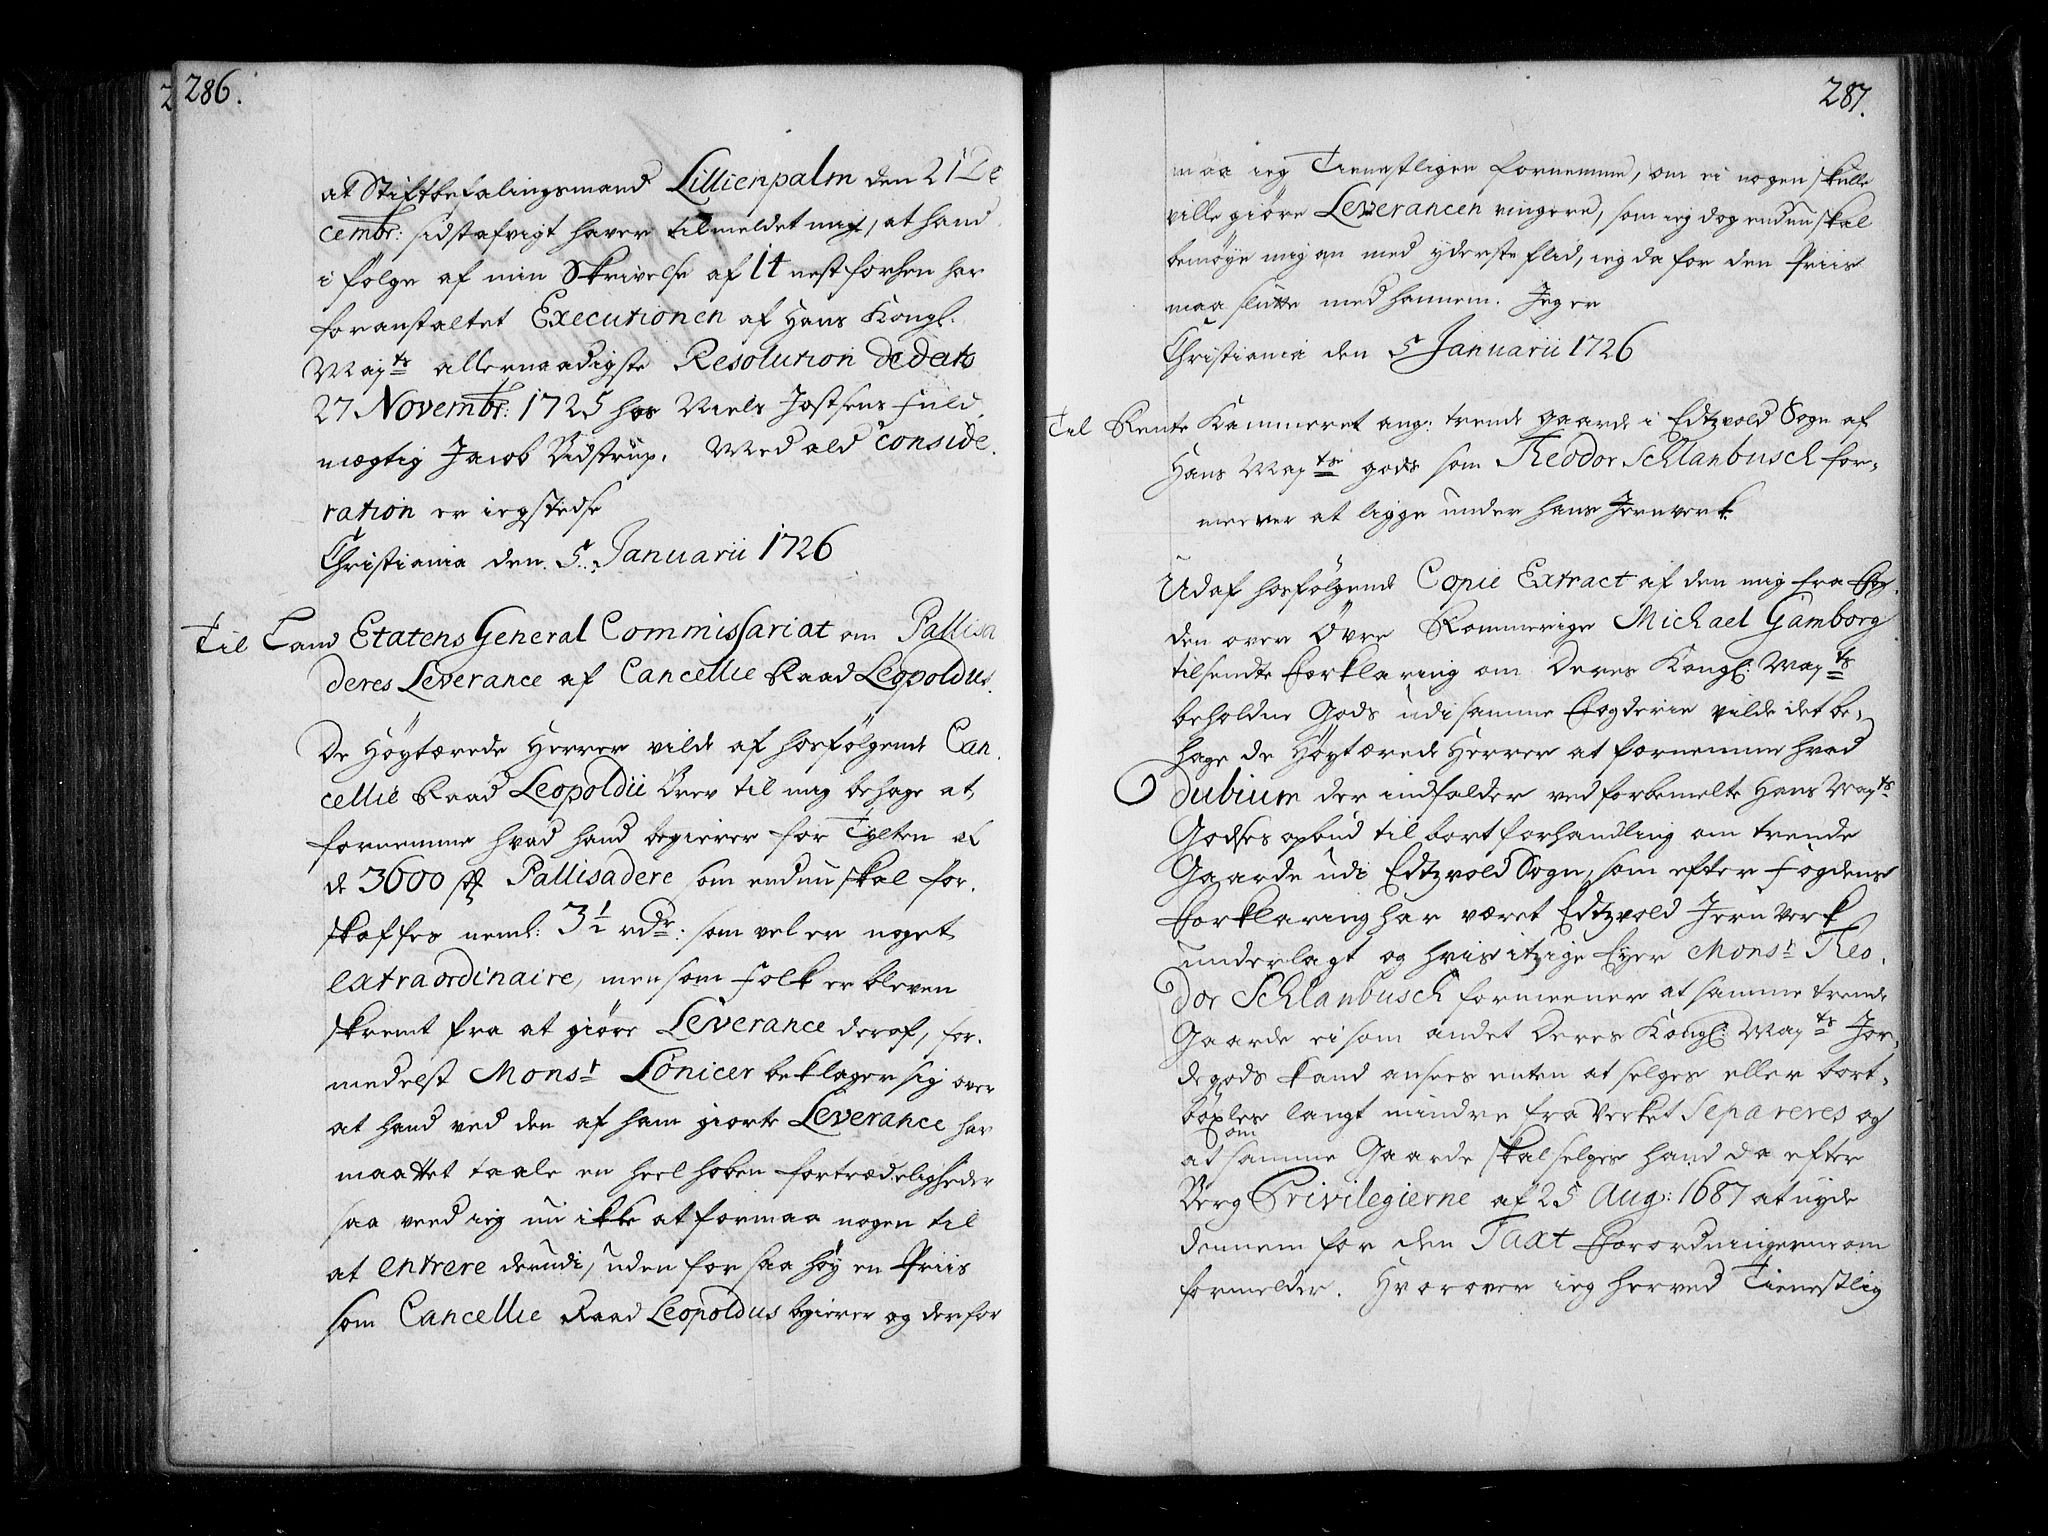 286.
at Stiftbefalingsmand Lillienpalm den 21 De
cembr: sidstafvigt haver tilmeldet mig, at hand
i følge af min Skrivelse af 14 nest forhen har
foranstaltet Executionen af Hans Kongl.
Mayts allernaadigste Resolution de dato
27 Novembr: 1725 hos Niels Jostsens fuld
mægtig Jacob Bidstrup. Med ald conside
ration er iegstedse
Christiania den 5. Januarii 1726
Til Land Etatens General Commissariat om Pallisa
deres Leverance af Cancellie Raad Leopoldus.
De Høytærede Herrer vilde af hosfølgende Can
cellie Raad Leopoldii Brev til mig behage at
fornemme hvad hand begierer for Tylten af
de 3600 st Pallisadere som endnu skal for
skaffes neml: 3½ rdr: som vel er noget
extraordinaire, men som folk er bleven
skremt fra at giøre Leverance deraf, for
medelst Monsr Lonicer beklager sig over
at hand ved den af ham giorte Leverance har
maattet taale en heel hoben fortrædeligheder
saa veed ieg nu ikke at formaa nogen til
at entrere derudi, uden for saa høy en Priis
som Cancellie Raad Leopoldus begierer og derfor
287.
maa ieg Tienestligen fornemme, om ei nogen skulle
ville giøre Leverancen ringere, som ieg dog endnu skal
bemøye mig om med yderste flid, ieg da for den Priis
maa slutte med hannem. Jeg er
Christiania den 5 Januarii 1726
Til Rente Kammeret ang: trende gaarde i Edtzvold Sogn af
Hans Mayts gods som Theodor Schlanbusch for-
meener at ligge under hans Jernverk.
Udaf hosfølgende Copie Extract af den mig fra Fog
den over Øvre Rommerige Michael Gamborg
tilsendte Forklaring om Deres Kongl: Mayts
beholdne Gods udi samme Fogderie vilde det be-
hage de Høytærede Herrer at fornemme hvad
dubium der indfalder ved forbemelte Hans Mayts
Godses opbud til bortforhandling om trende
Gaarde udi Edtzvold Sogn, som efter fogdens
Forklaring har været Edtzvold Jern Verk
underlagt og hvis itzige Eyer Monsr Theo
dor Schlanbusch formeener at samme trende
Gaarde ei som andet Deres Kongl: Mayts Jor-
degods kand ansees enten at selges eller bort-
böxles langt mindre fra Verket Separeres og
om
at samme Gaarde skal selges hand da efter
Berg Privilegierne af 25 Aug: 1687 at nyde
dennem for den Taxt Forordningerne om
formelder. Hvorover ieg herved Tienestlig